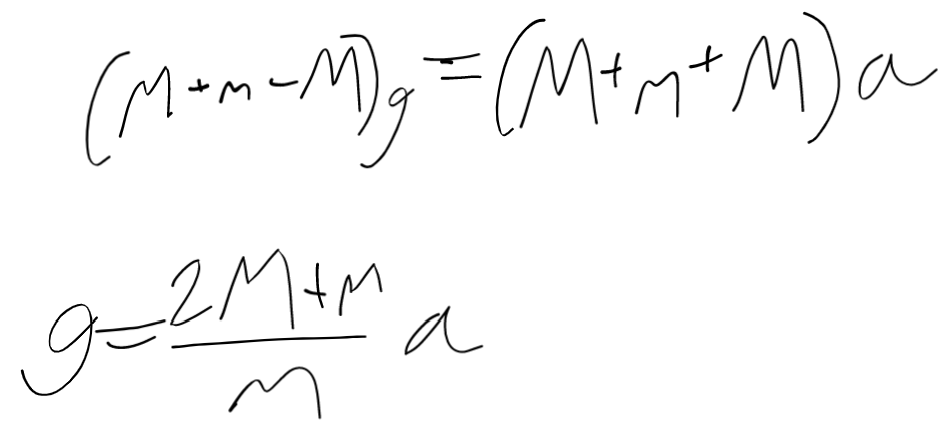 (M+m-M)g=(M+m+M)a
g=\frac{2M+m}{m}a